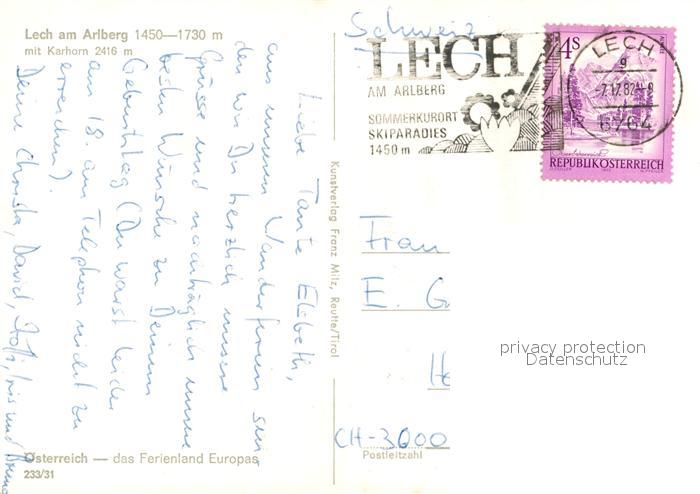 Lech am Arlberg 1450—1730 m
mit Karhorn 2416 m
Liebe Tante Elsbeth,
aus unseren Wanderferien sen-
den wir Dir herzlich unsere
Grüsse und nachträglich unsere
besten Wünsche zu Deinem
Geburtstag (Du warst leider
am 18. am Telephon nicht zu
erreichen).
Deine Christa, David, Iris und
Österreich — das Ferienland Europas
233/31
Kunstverlag Franz Milz, Reutte/Tirol
Schweiz
LECH
AM ARLBERG
SOMMERKURORT
SKIPARADIES
1450 m
4S
REPUBLIK ÖSTERREICH
LECH
6764
Frau
E. G
He
CH-3000
Postleitzahl
privacy protection
Datenschutz